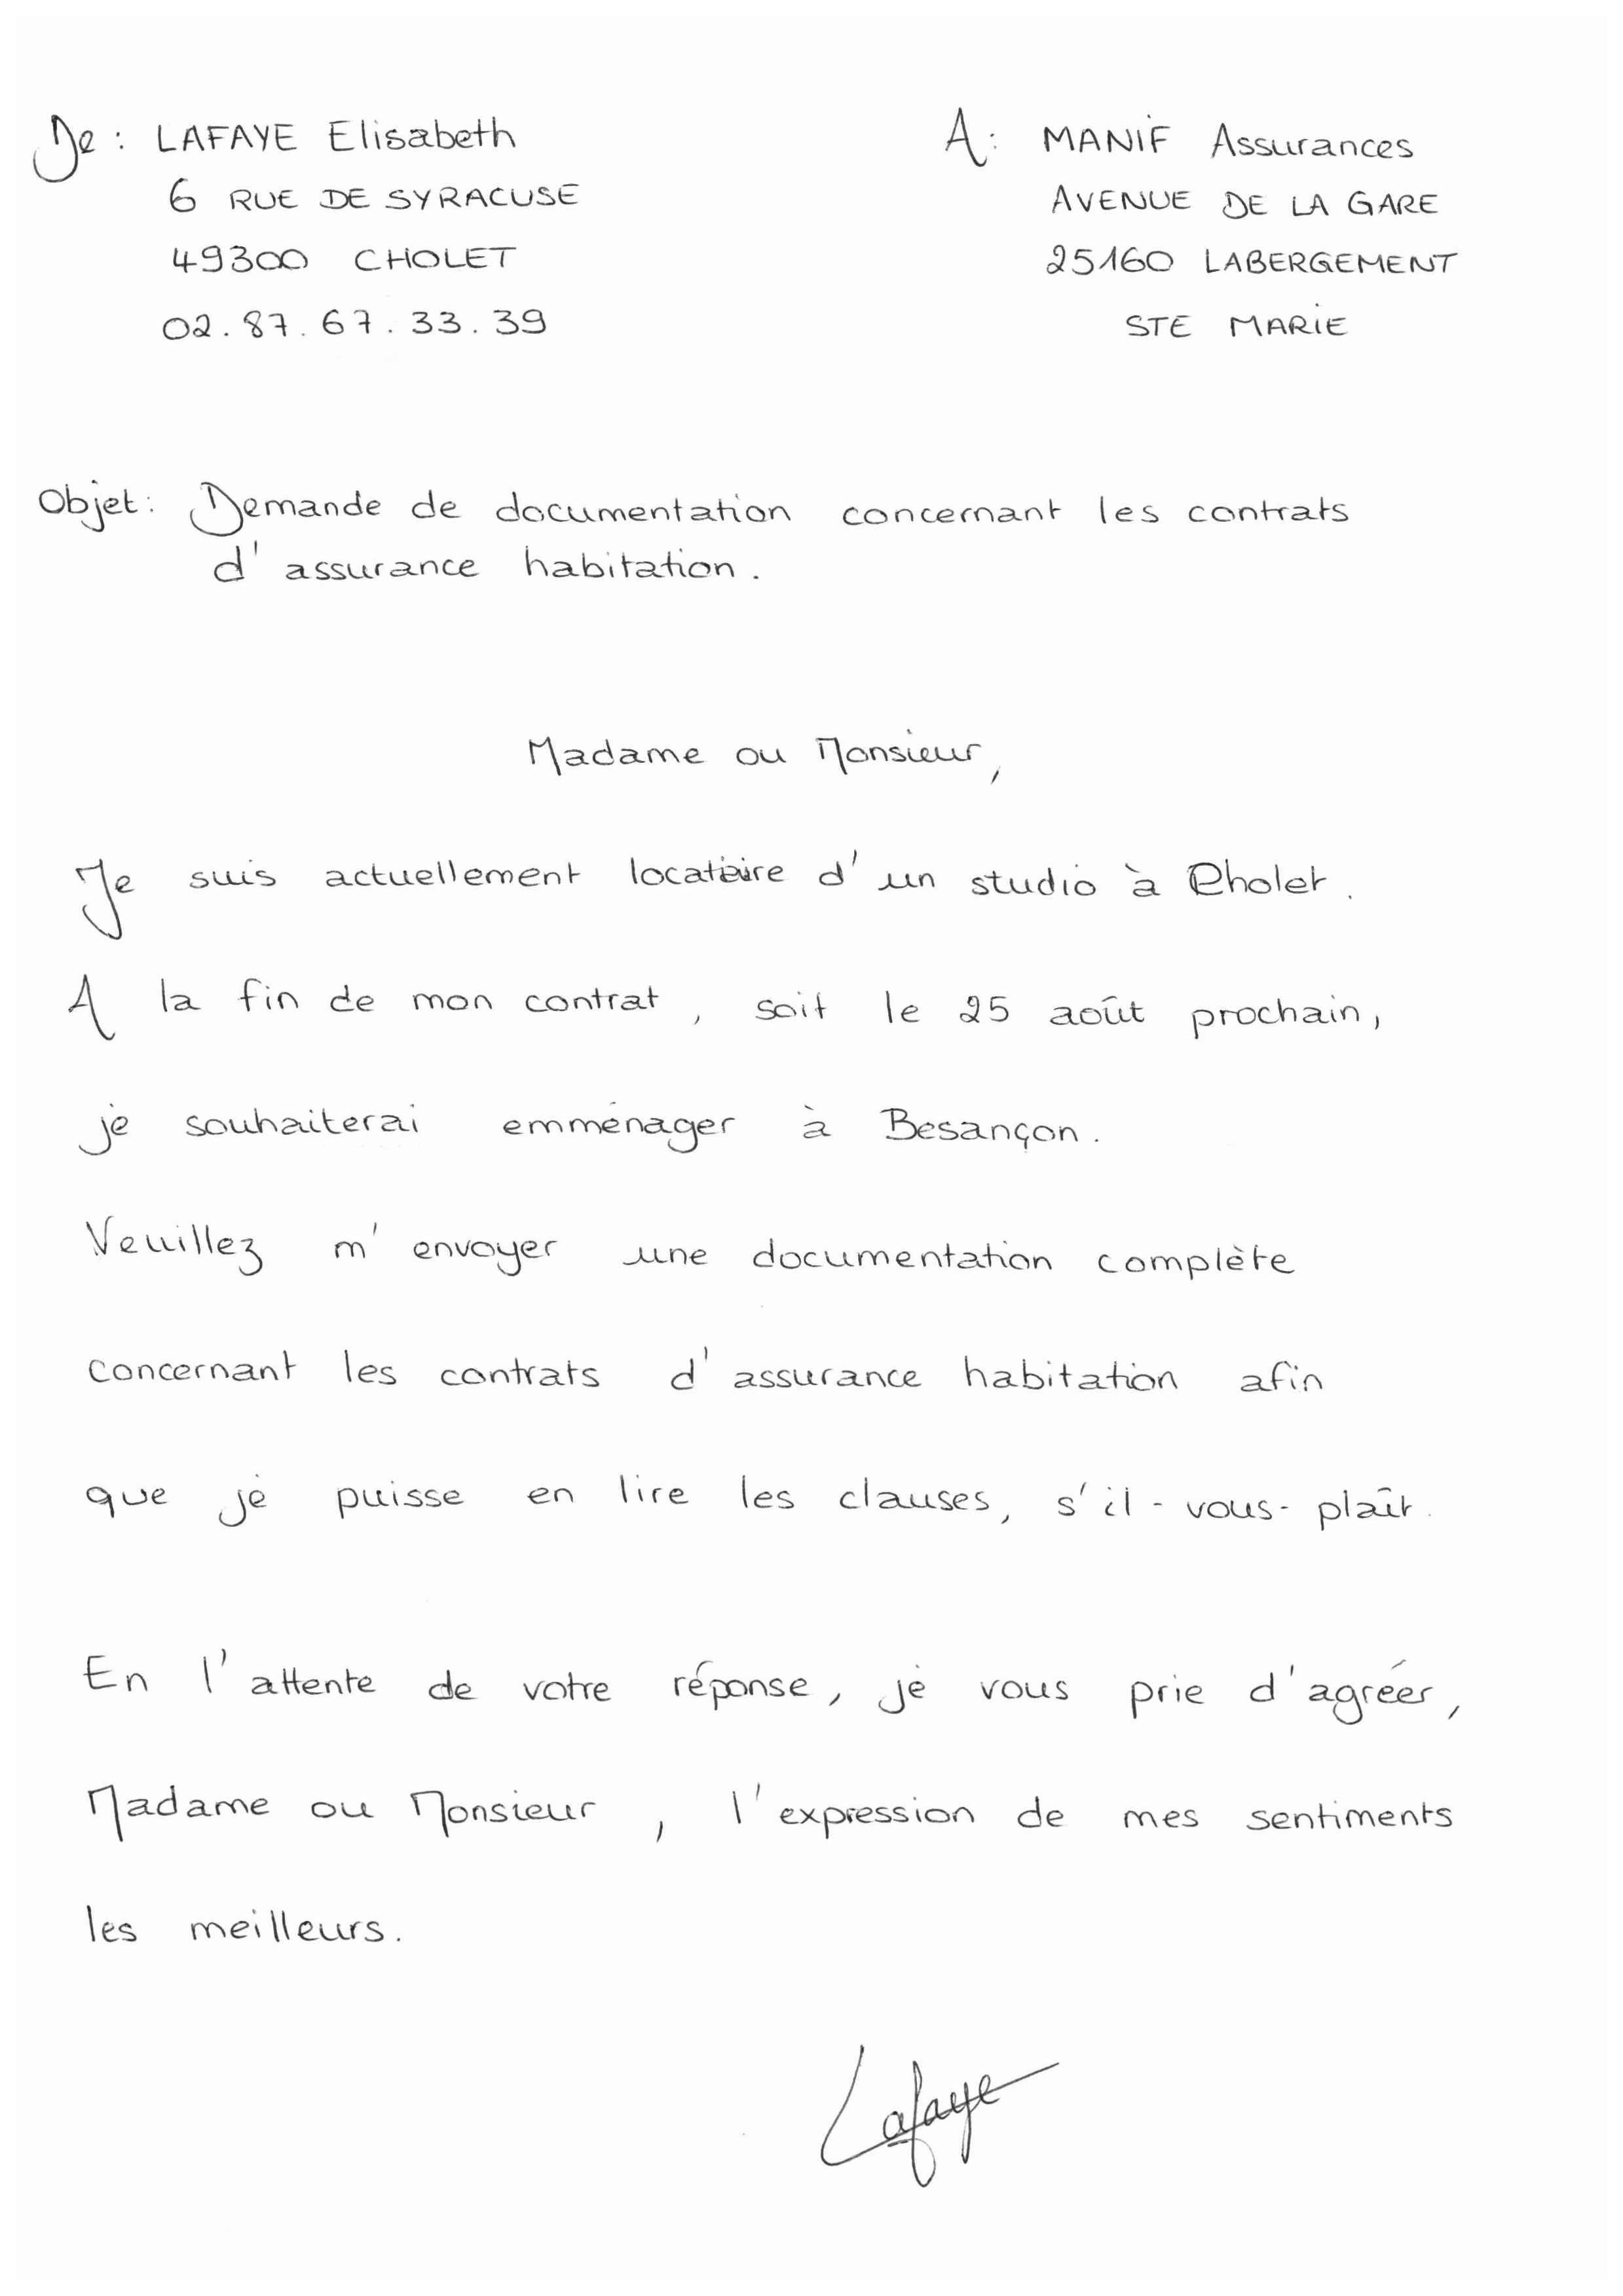 De : LAFAYE Elisabeth
6 RUE DE SYRACUSE
49300 CHOLET
02.87.67.33.39
A : MANIF Assurances
AVENUE DE LA GARE
25160 LABERGEMENT
STE MARIE
Objet : Demande de documentation concernant les contrats
d'assurance habitation.
Madame ou Monsieur,
Je suis actuellement locataire d'un studio à Cholet.
A la fin de mon contrat, soit le 25 août prochain,
je souhaiterai emménager à Besançon.
Veuillez m'envoyer une documentation complète
concernant les contrats d'assurance habitation afin
que je puisse en lire les clauses, s'il-vous-plaît.
En l'attente de votre réponse, je vous prie d'agréer,
Madame ou Monsieur, l'expression de mes sentiments
les meilleurs.
Lafaye